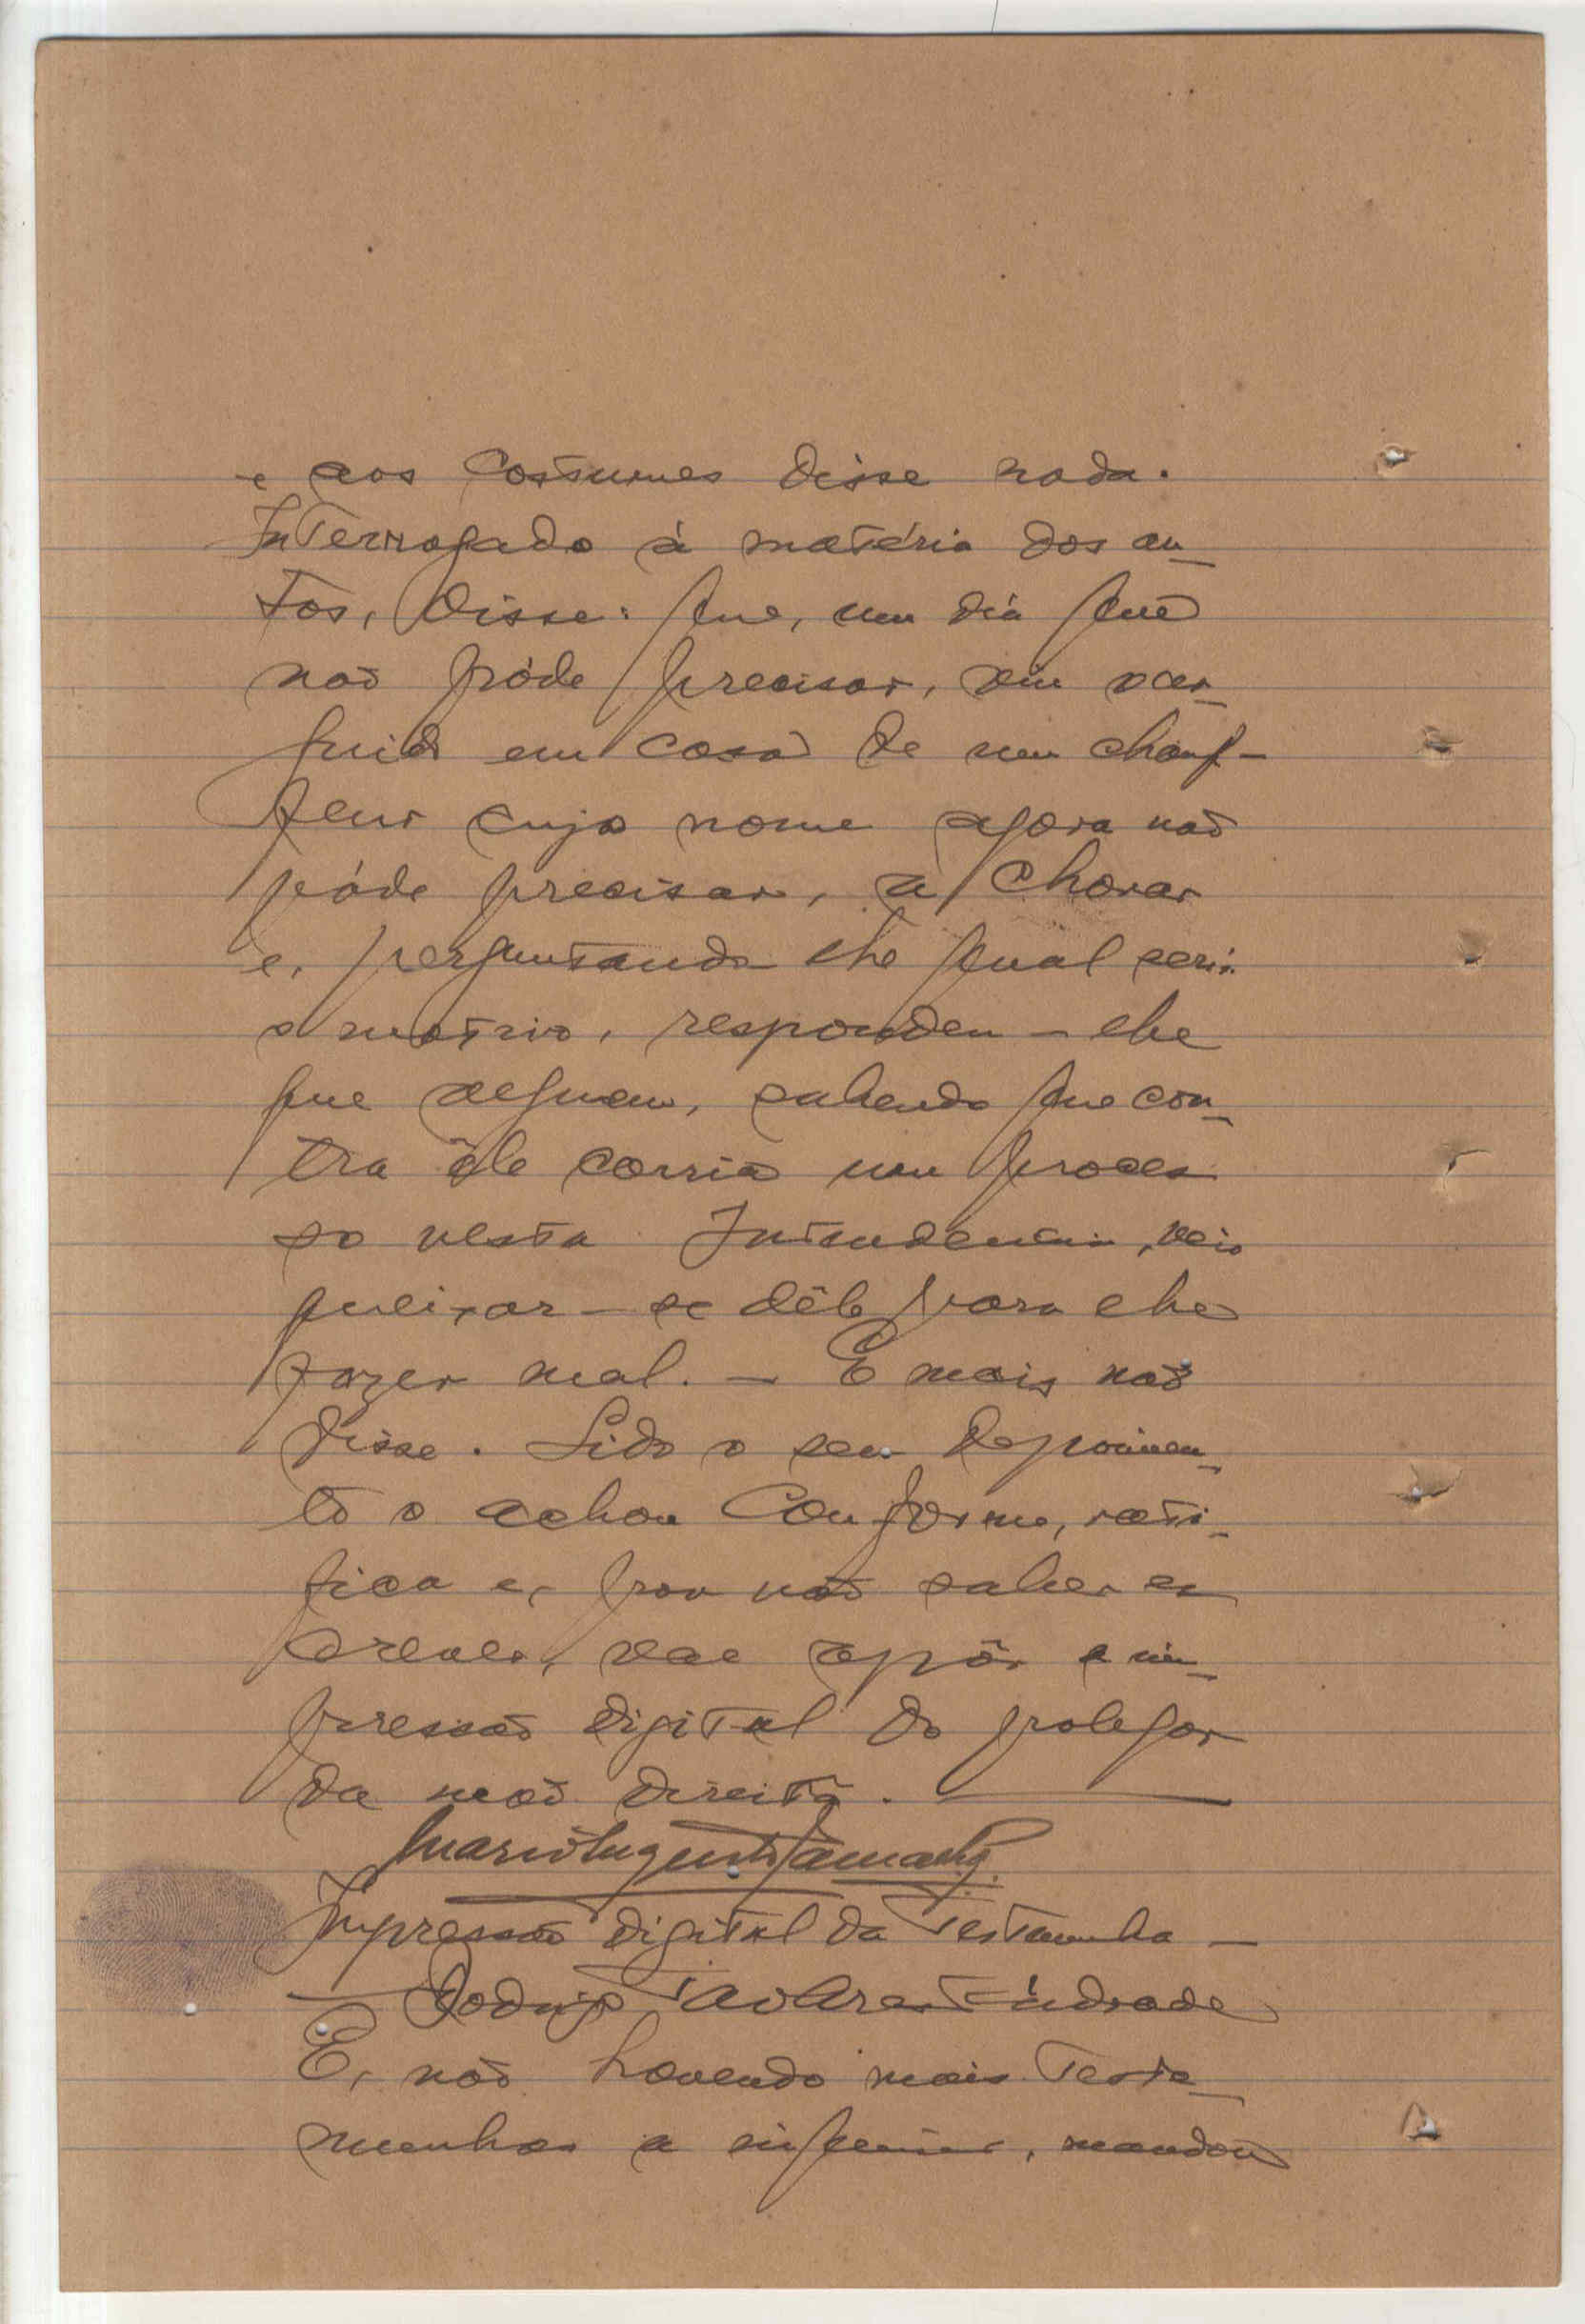 e aos costumes disse nada.
Interrogado á matéria dos au-
tos, disse: que, um dia que
não póde precisar, viu o ar-
guido em casa de um chauf-
feur cujo nome agora não
póde precisar, a chorar
e, perguntando-lhe qual seria
o motivo, respondeu-lhe
que alguem, sabendo que con-
tra êle corria um proces
so nesta Intendencia, veio
queixar-se dêle para lhe
fazer mal. — E mais não
disse. Lido o seu depoimen-
to o achou conforme, rati-
fica e, por não saber es
crever, vae apôr a im-
pressão digital do polegar
da mão direita. —
Mario Augusto
Impressão digital da testemunha —
— Rodrigo Tavares Andrade
E, não havendo mais teste-
munhas a inquirir, mandou